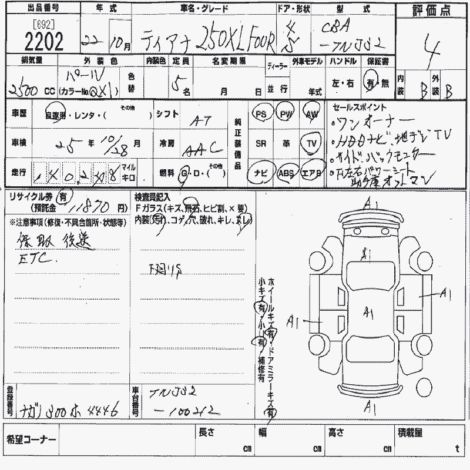 出品番号 年式 車名・グレード ドア・形状 型式 評価点
[692]
2202 22年 10月 ティアナ 250XL FOUR 4 S CBA-TNJ32 4
排気量 外装色 色替 内装色 定員 名変期限 ディーラー 外車モデル ハンドル 保証書 内装 外装
2500 CC パール (カラーNo QX1) 5名 月 並行 年 左・右 有・無 B B
車歴 自家用・レンタ・(その他) シフト AT 純正装備品 PS PW AW セールスポイント
車検 25年 10/28月 冷房 AAC SR 革 TV
走行 マイル キロ 燃料 G・D・( ) ナビ ABS エアB
ワンオーナー
HDDナビ 地デジTV
サイドバックモニター
F左右パワーシート
助手席オットマン
リサイクル券 有 (預託金 11870 円)
検査員記入
Fガラス(キズ,飛石,ヒビ割,×要)
内装(汚れ,コゲ,穴,破れ,キレ,よし)
※注意事項(修復・不具合箇所・状態等)
保取後送
ETC
下廻りS
小キズ有・小凹有/補修有
ホイールキズ有・ドアミラーキズ有
A1
A1 A1 A1
A1
登録番号 ナガノ 300 ホ 4446
車台番号 TNJ32-100212
希望コーナー 長さ cm 幅 cm 高さ cm 積載量 t